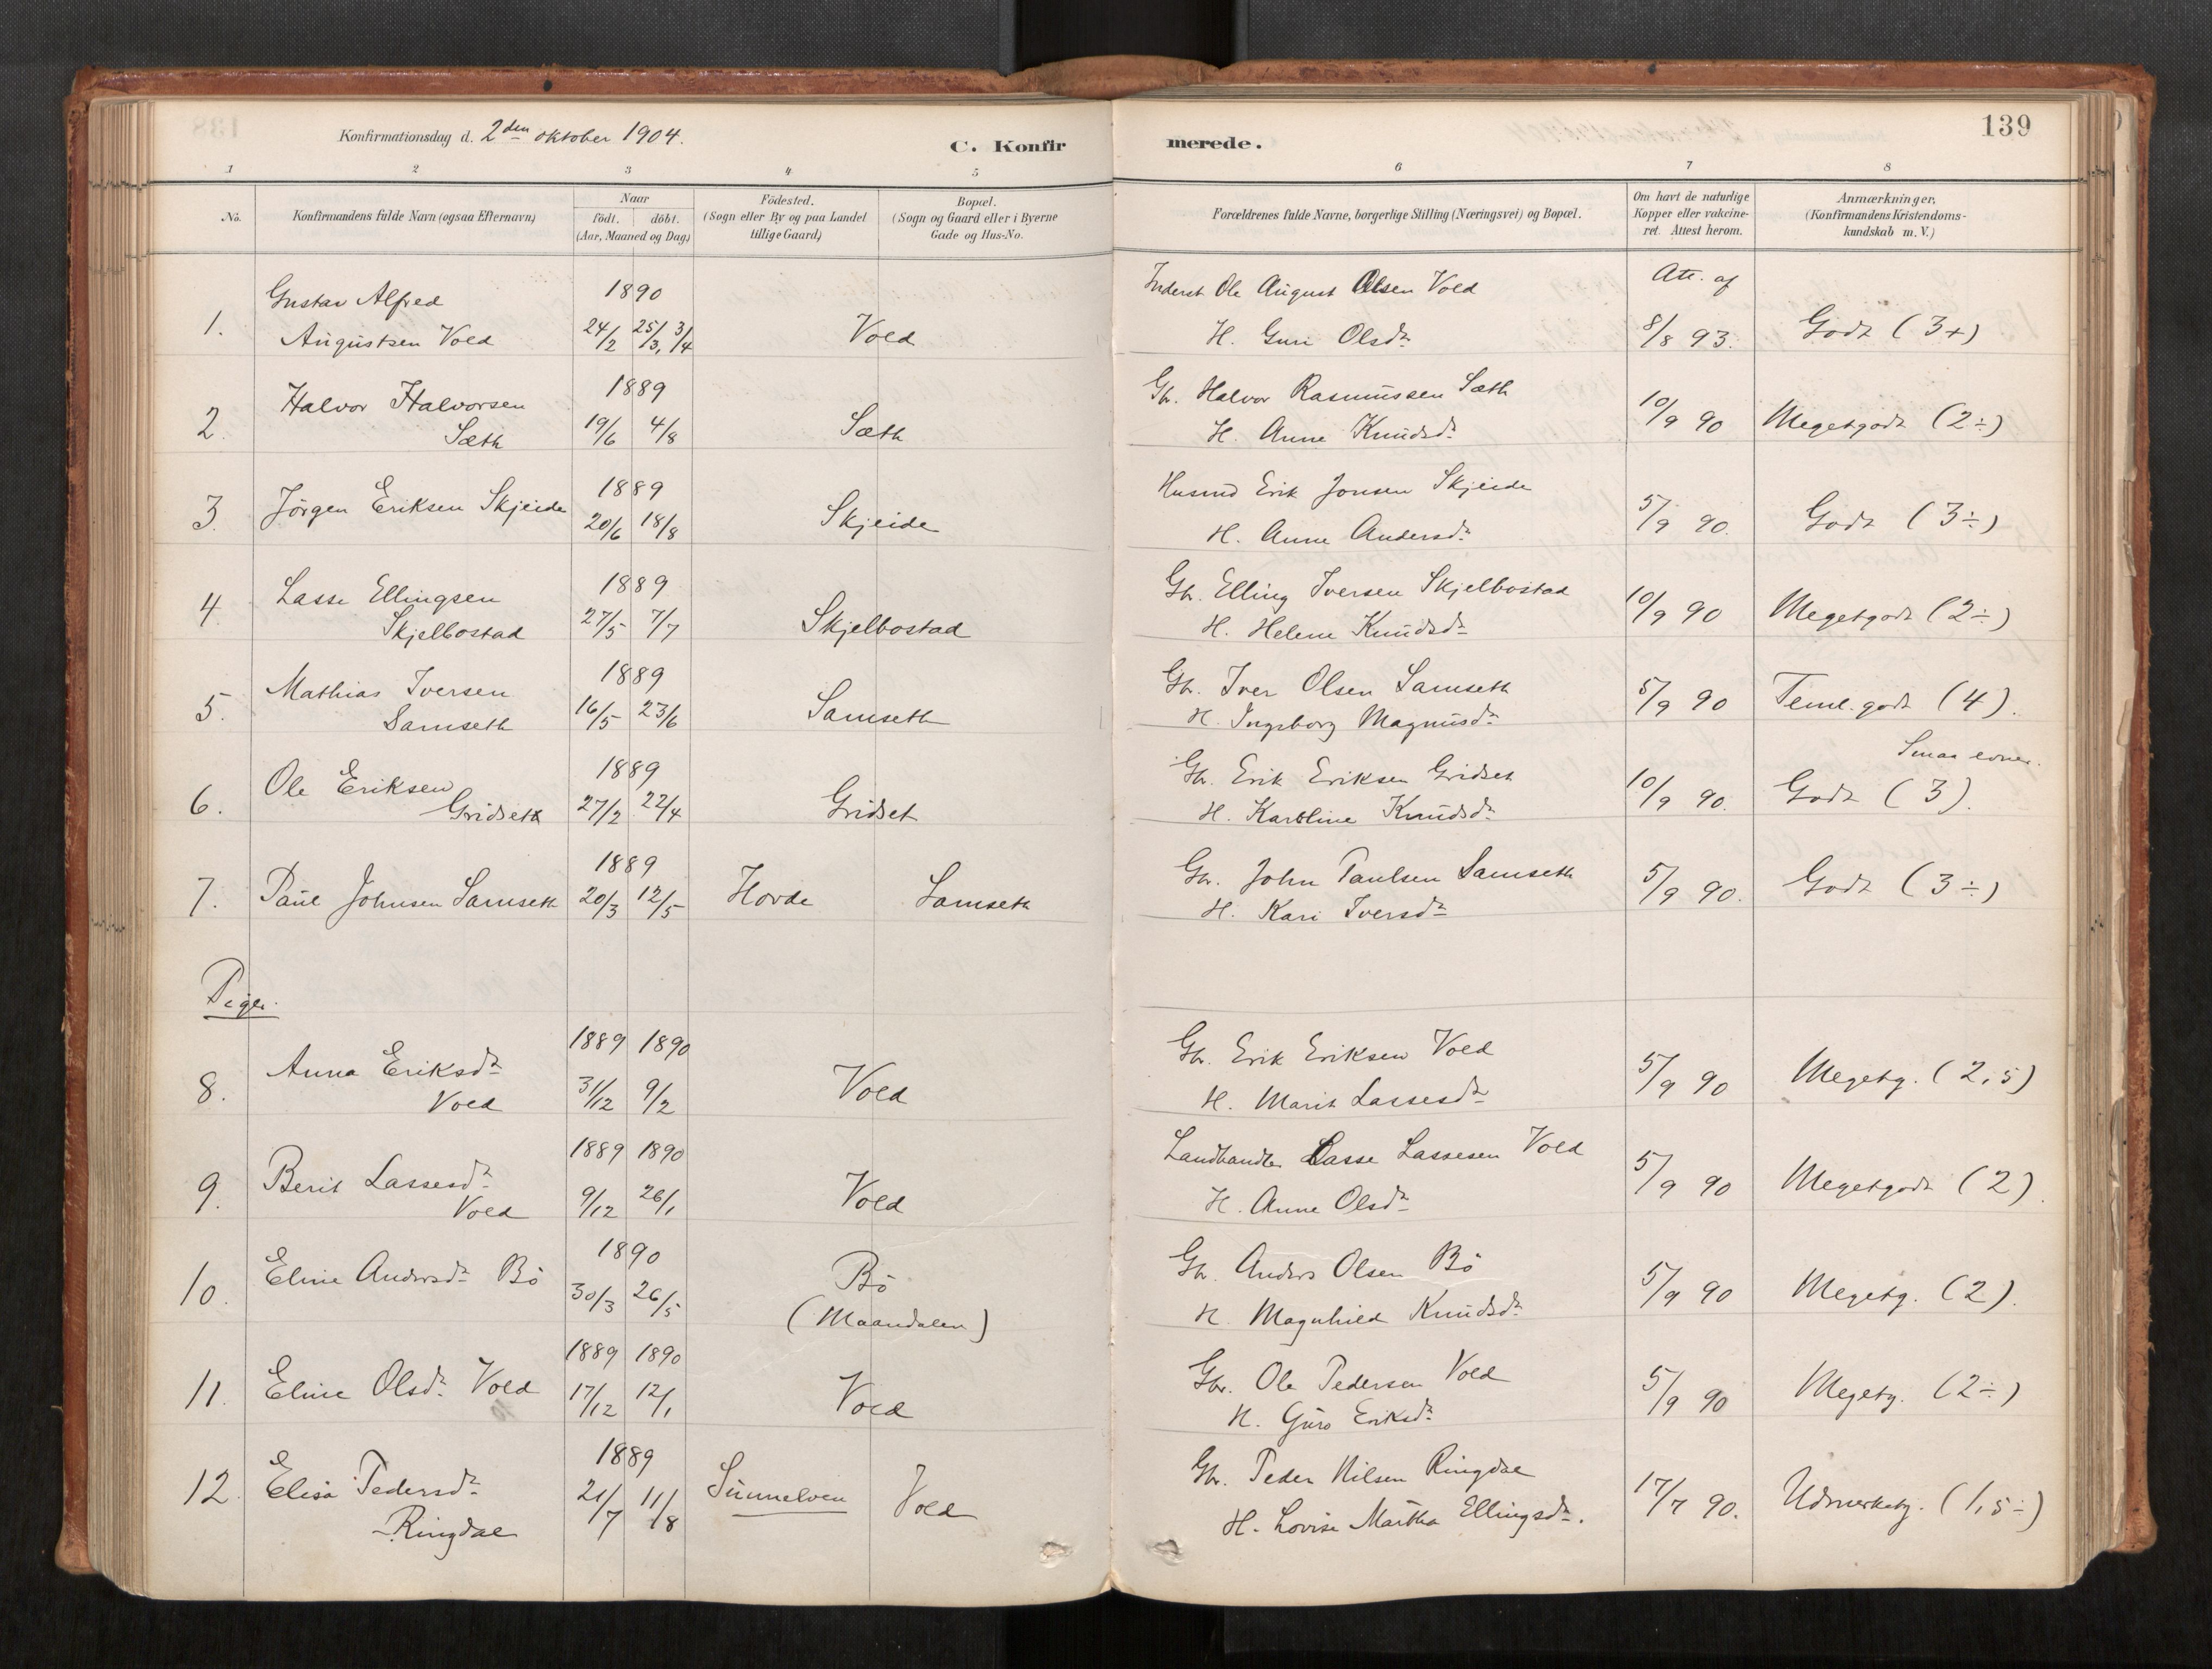 139
Konfirmationsdag d. 2den oktober 1904.
C. Konfirmerede.
1 2 3 4 5 6 7 8
No.
Konfirmandens fulde Navn (ogsaa Efternavn)
Naar
födt. döbt.
(Aar, Maaned og Dag)
Födested.
(Sogn eller By og paa Landet
tillige Gaard)
Bopæl.
(Sogn og Gaard eller i Byerne
Gade og Hus-No.
Forældrenes fulde Navne, borgerlige Stilling (Næringsvei) og Bopæl.
Om havt de naturlige
Kopper eller vakcine-
ret. Attest herom.
Anmærkninger,
(Konfirmandens Kristendoms-
kundskab m. V.)
Gustav Alfred 1890 Inderst Ole August Olsen Vold Att. af
1. Augustsen Vold 24/2 25/3, 3/4 Vold H. Guri Olsdr 8/8 93. Godt (3+)
Halvor Halvorsen 1889 Gbr. Halvor Rasmussen Sæth
2. Sæth 19/6 4/8 Sæth H. Anne Knudsdr 10/9 90 Megetgodt (2÷)
1889 Husmd Erik Jonsen Skjeide
3. Jörgen Eriksen Skjeide 20/6 18/8 Skjeide H. Anne Andersdr 5/9 90. Godt (3÷)
Lasse Ellingsen 1889 Gbr. Elling Iversen Skjelbostad
4. Skjelbostad 27/5 7/7 Skjelbostad H. Helene Knudsdr 10/9 90 Megetgodt (2÷)
Mathias Iversen 1889 Gbr. Iver Olsen Samseth
5. Samseth 16/5 23/6 Samseth H. Ingeborg Magnusdr 5/9 90 Teml. godt (4).
Smaa evner.
Ole Eriksen 1889 Gbr. Erik Eriksen Gridset
6. Gridseth 27/2 22/4 Gridset H. Karoline Knudsdr 10/9 90. Godt (3).
1889 Gbr. John Paulsen Samseth
7. Paul Johnsen Samseth 20/3 12/5 Hovde Samseth H. Kari Iversdr 5/9 90. Godt (3÷)
Piger.
Anna Eriksdr 1889 1890 Gbr. Erik Eriksen Vold
8. Vold 31/12 9/2 Vold H. Marit Lassesdr 5/9 90 Megetg. (2,5)
Berit Lassesdr 1889 1890 Landhandler Lasse Lassesen Vold
9. Vold 9/12 26/1 Vold H. Anne Olsdr 5/9 90 Megetgodt (2).
1890 Gbr. Anders Olsen Bö
10. Eline Andersdr Bö 30/3 26/5 Bö H. Magnhild Knudsdr 5/9 90 Megetg. (2).
(Maandalen)
1889 1890 Gbr. Ole Pedersen Vold
11. Eline Olsdr Vold 17/12 12/1 Vold H. Guro Eriksdr 5/9 90 Megetg. (2÷)
Elisa Pedersdr 1889 Gbr. Peder Nilsen Ringdal
12. Ringdal 21/7 11/8 Sunnelven Vold H. Lovise Martha Ellingsdr. 17/7 90. Udmerketg. (1,5÷)